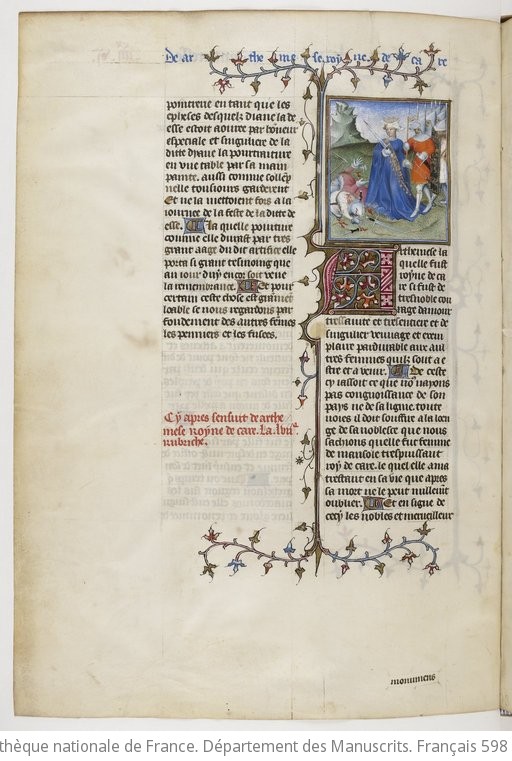 De ar the mise royne de ca re
pointrerie en tant que les
ephesies desquelz diane la de
esse estoit aouree par honneur
especiale et singuliere de la
ditte dyane la pourtraiture
en une table par sa main
painte. aussi comme
nelle tousiours garderent
Et ne la mettoient fors a la
iournee de la feste de la dite de
esse. A la quelle pointure
comme elle durast par tres
grant aage du dit artifice elle
porta si grant tesmoing que
an iour duy encor soit veue
la remembrance. Et pour
certain ceste chose est
loable se nous regardons par
fondement des autres femes
les penniers et les fusees.
Cy apres sensuit de arthe
mese royne de care. La
rubriche.
Arthemese la
quelle fust
royne de ca
re si fust de
tresnoble cou
rage damour
tressainte et tresentiere et de
singulier vesuage et exem
plaire pardurable aux au
tres femmes qui sont a e
stre et a venir. De ceste
cy iassoit ce que no nayons
pas congnoissance de son
pays ne de sa ligne. toute
noies il doit souffire a la loen
ge de sa noblesce que nous
sachions quelle fut femme
de mausole trespuissant
roy de care. le quel elle ama
tressant en sa vie que apres
sa mort ne le peut nullemt
oublier. Et en signe de
cecy les nobles et merueilleux
monumens
thèque nationale de France. Département des Manuscrits. Français 598